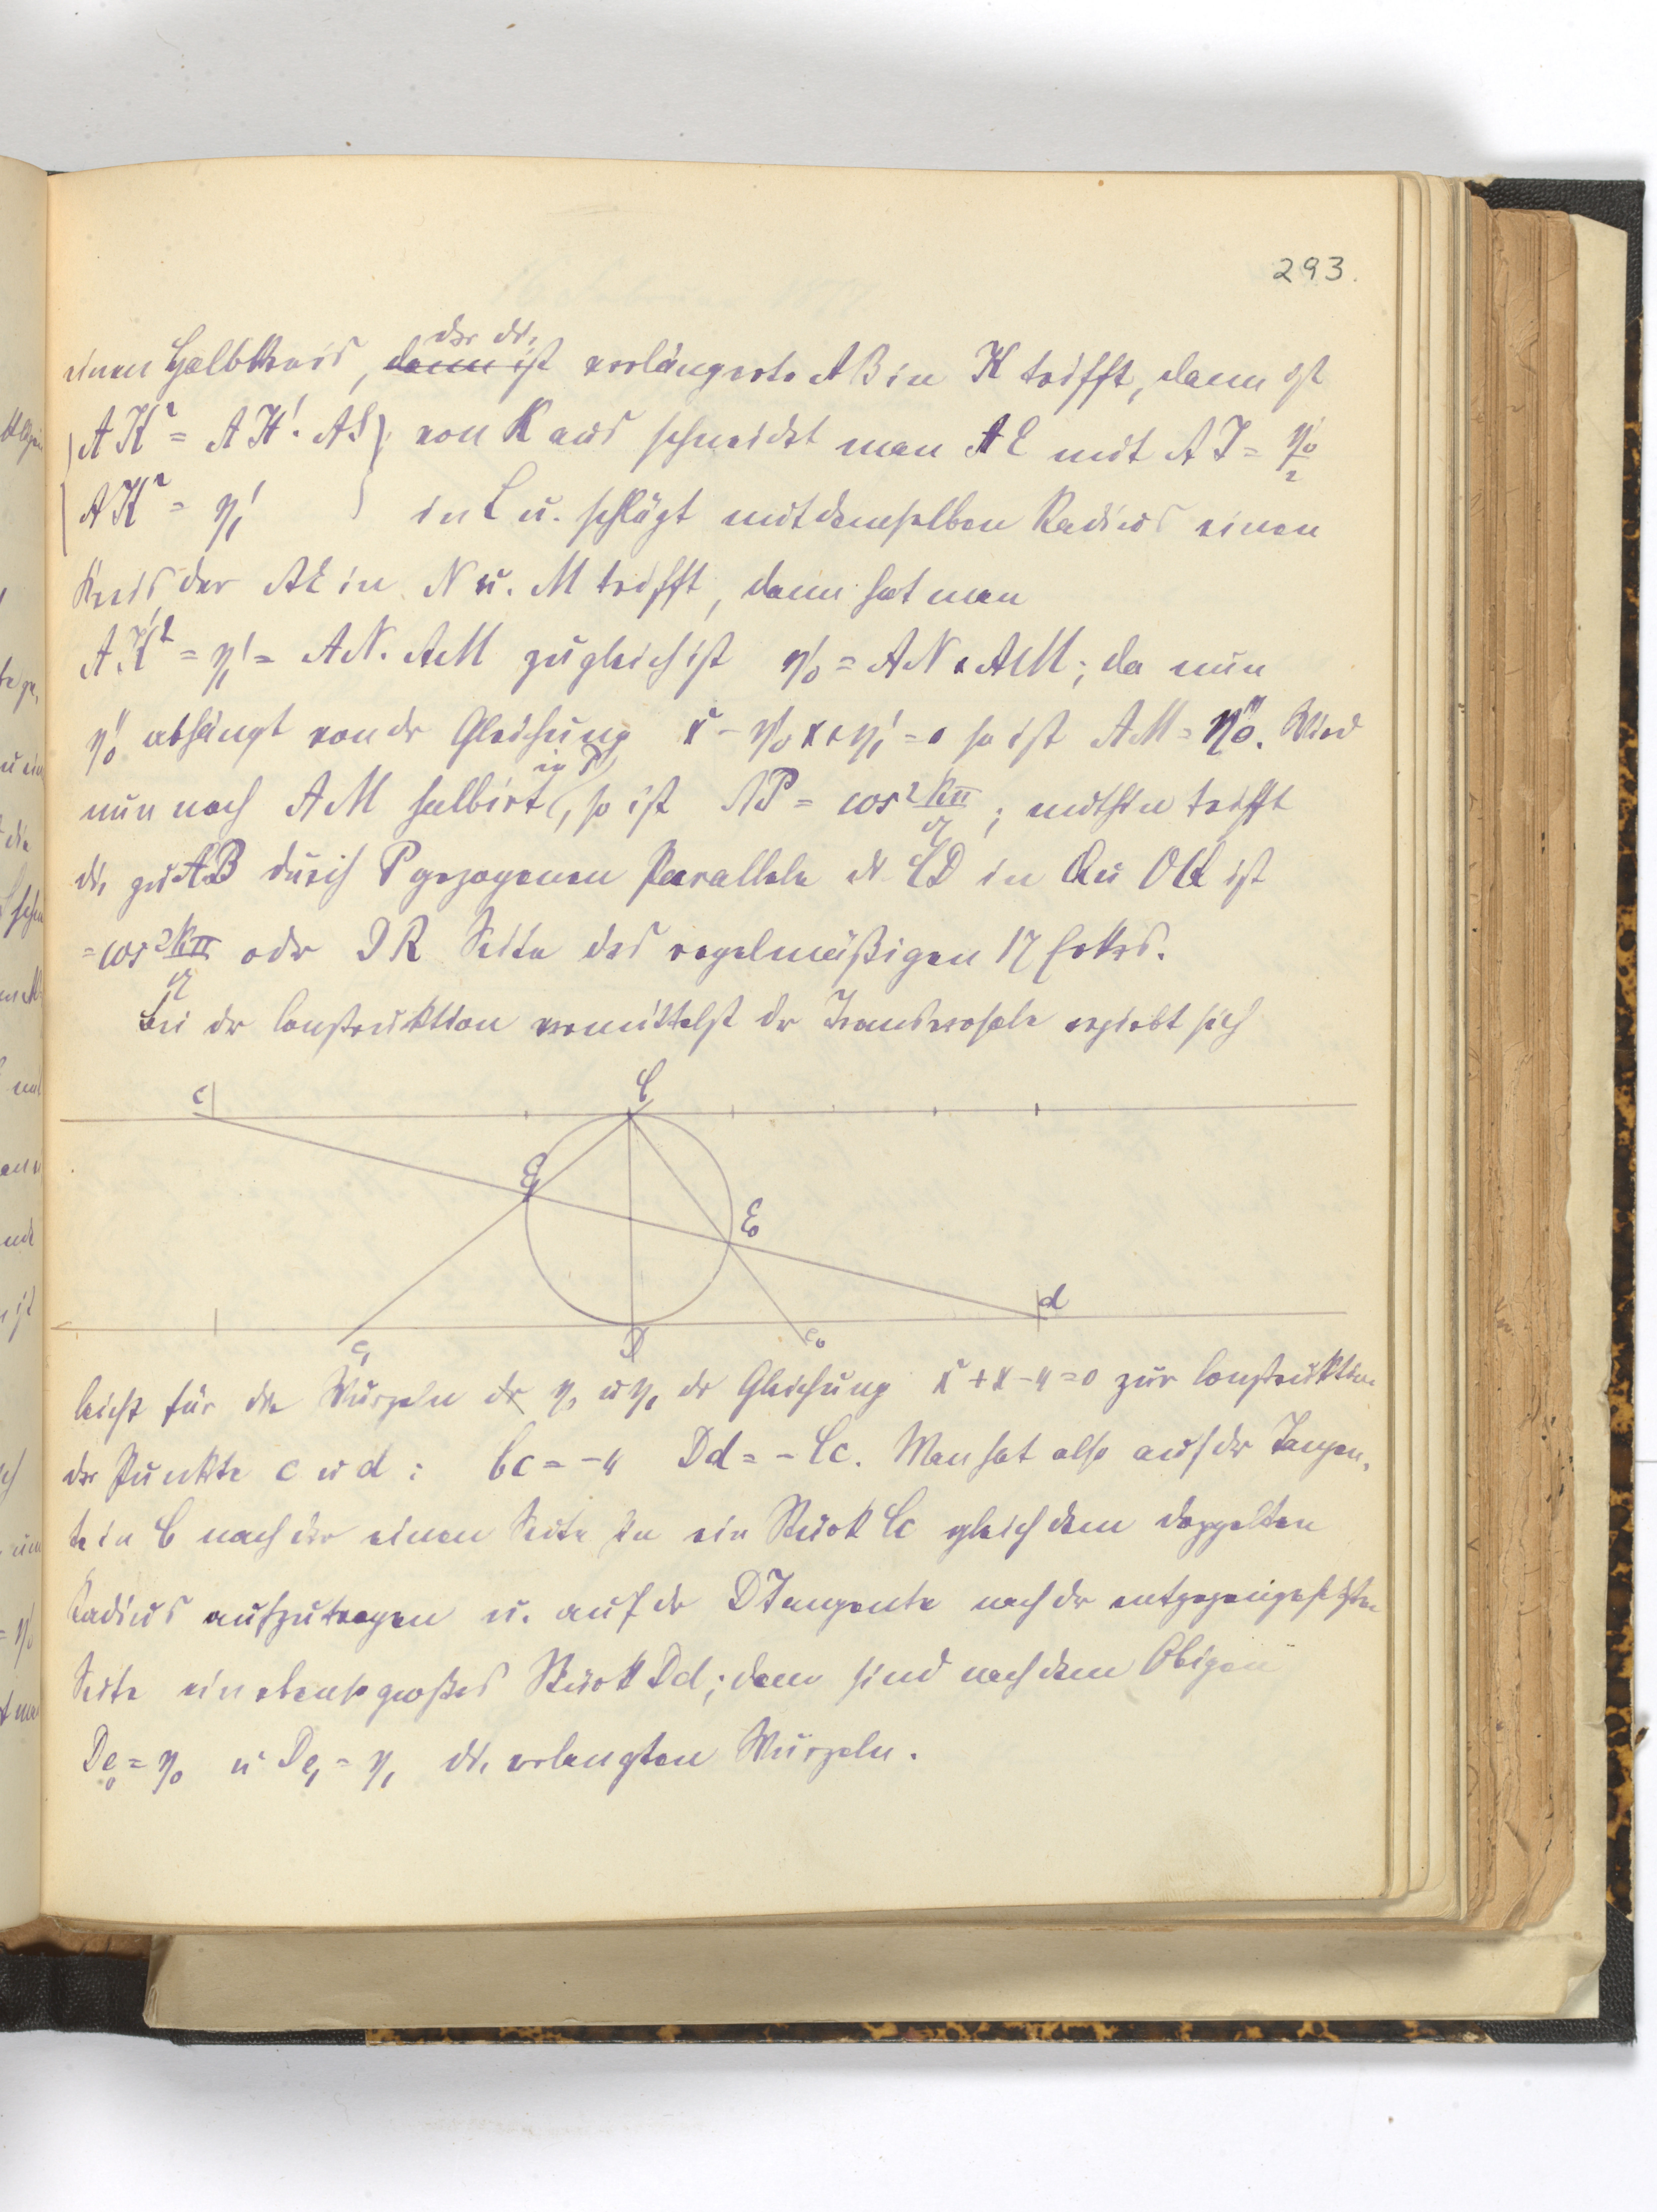 293.
der die
einen Halbkreis, dann ist verlängerte AB in K trifft, dann ist
AK² = AH'. AS von K aus schneidet man AC mit AJ = η'₀/2
AK² = η'₁ in L u. schlägt mit demselben Radius einen
Kreis der AC in N u. M trifft, dann hat man
AK² = η'₁ = AN. AM zugleich ist η'₀ = AN + AM; da nun
η''₀ abhängt von der Gleichung x² - η'₀x + η'₁ = 0 so ist AM = η''₀. Wird
in P
nun noch AM halbirt, so ist AP = cos 2kπ/17; mithin trifft
die zu AB durch P gezogenen Parallele die CD in Q u OQ ist
= cos 2kπ/17 oder DR Seite des regelmäßigen 17 Ecks.
Bei der Construktion vermittelst der Transversale ergiebt sich
c C
E₁ E₀
d
e₁ D e₀
leicht für die Wurzeln der η₀ u η₁ der Gleichung x² + x - 4 = 0 zur Construktion
der Punkte c u d : Cc = -4 Dd = - Cc. Man hat also auf der Tangen-
te in C nach der einen Seite ein Stück Cc gleich dem doppelten
Radius aufzutragen u. auf der D Tangente nach der entgegengesetzten
Seite ein ebenso großes Stück Dd; dann sind nach dem Obigen
De₀ = η₀ u De₁ = η₁ die verlangten Wurzeln.